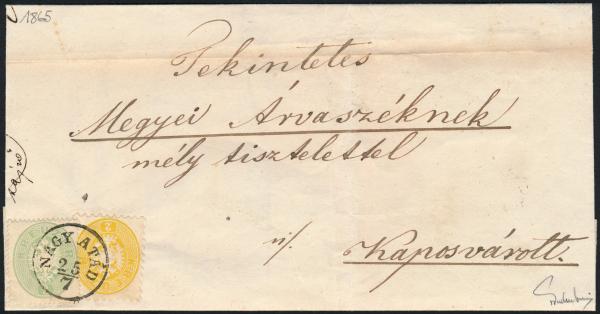 1865
Tekintetes
Megyei Árvaszéknek
mély tisztelettel
NAGY ATÁD
25
7
n/.
Kaposvárott.